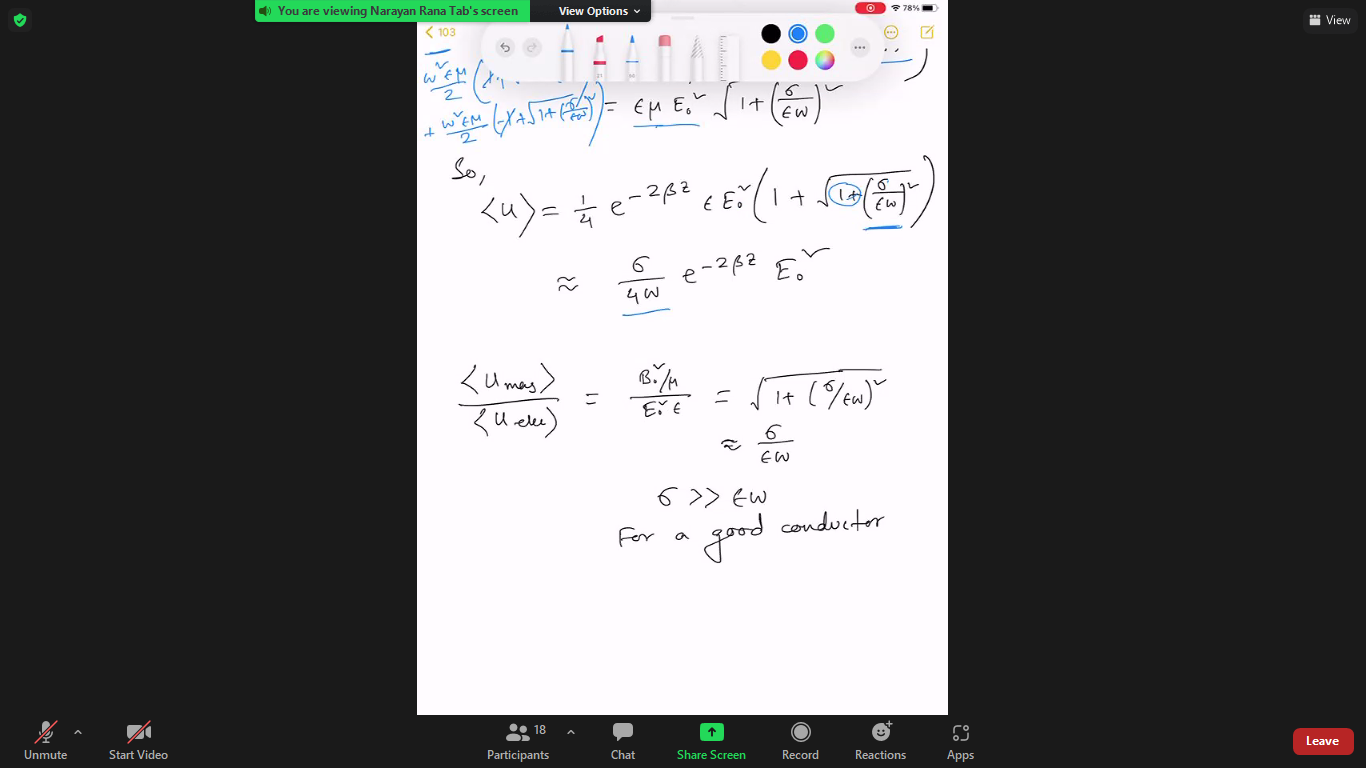 You are viewing Narayan Rana Tab's screen
View Options
View
78%
103
= ϵμ E₀² √1+(σ/ϵω)²
ω²ϵμ/2
+ ω²ϵμ/2 (-1+√1+(σ/ϵω)²)
So,
⟨u⟩ = 1/4 e^-2βz ϵ E₀² (1 + √1+(σ/ϵω)²)
≈ σ/4ω e^-2βz E₀²
⟨u mag⟩/⟨u elec⟩ = B₀²/μ / E₀² ϵ = √1+(σ/ϵω)²
≈ σ/ϵω
σ >> ϵω
For a good conductor
Unmute
Start Video
Participants
18
Chat
Share Screen
Record
Reactions
Apps
Leave